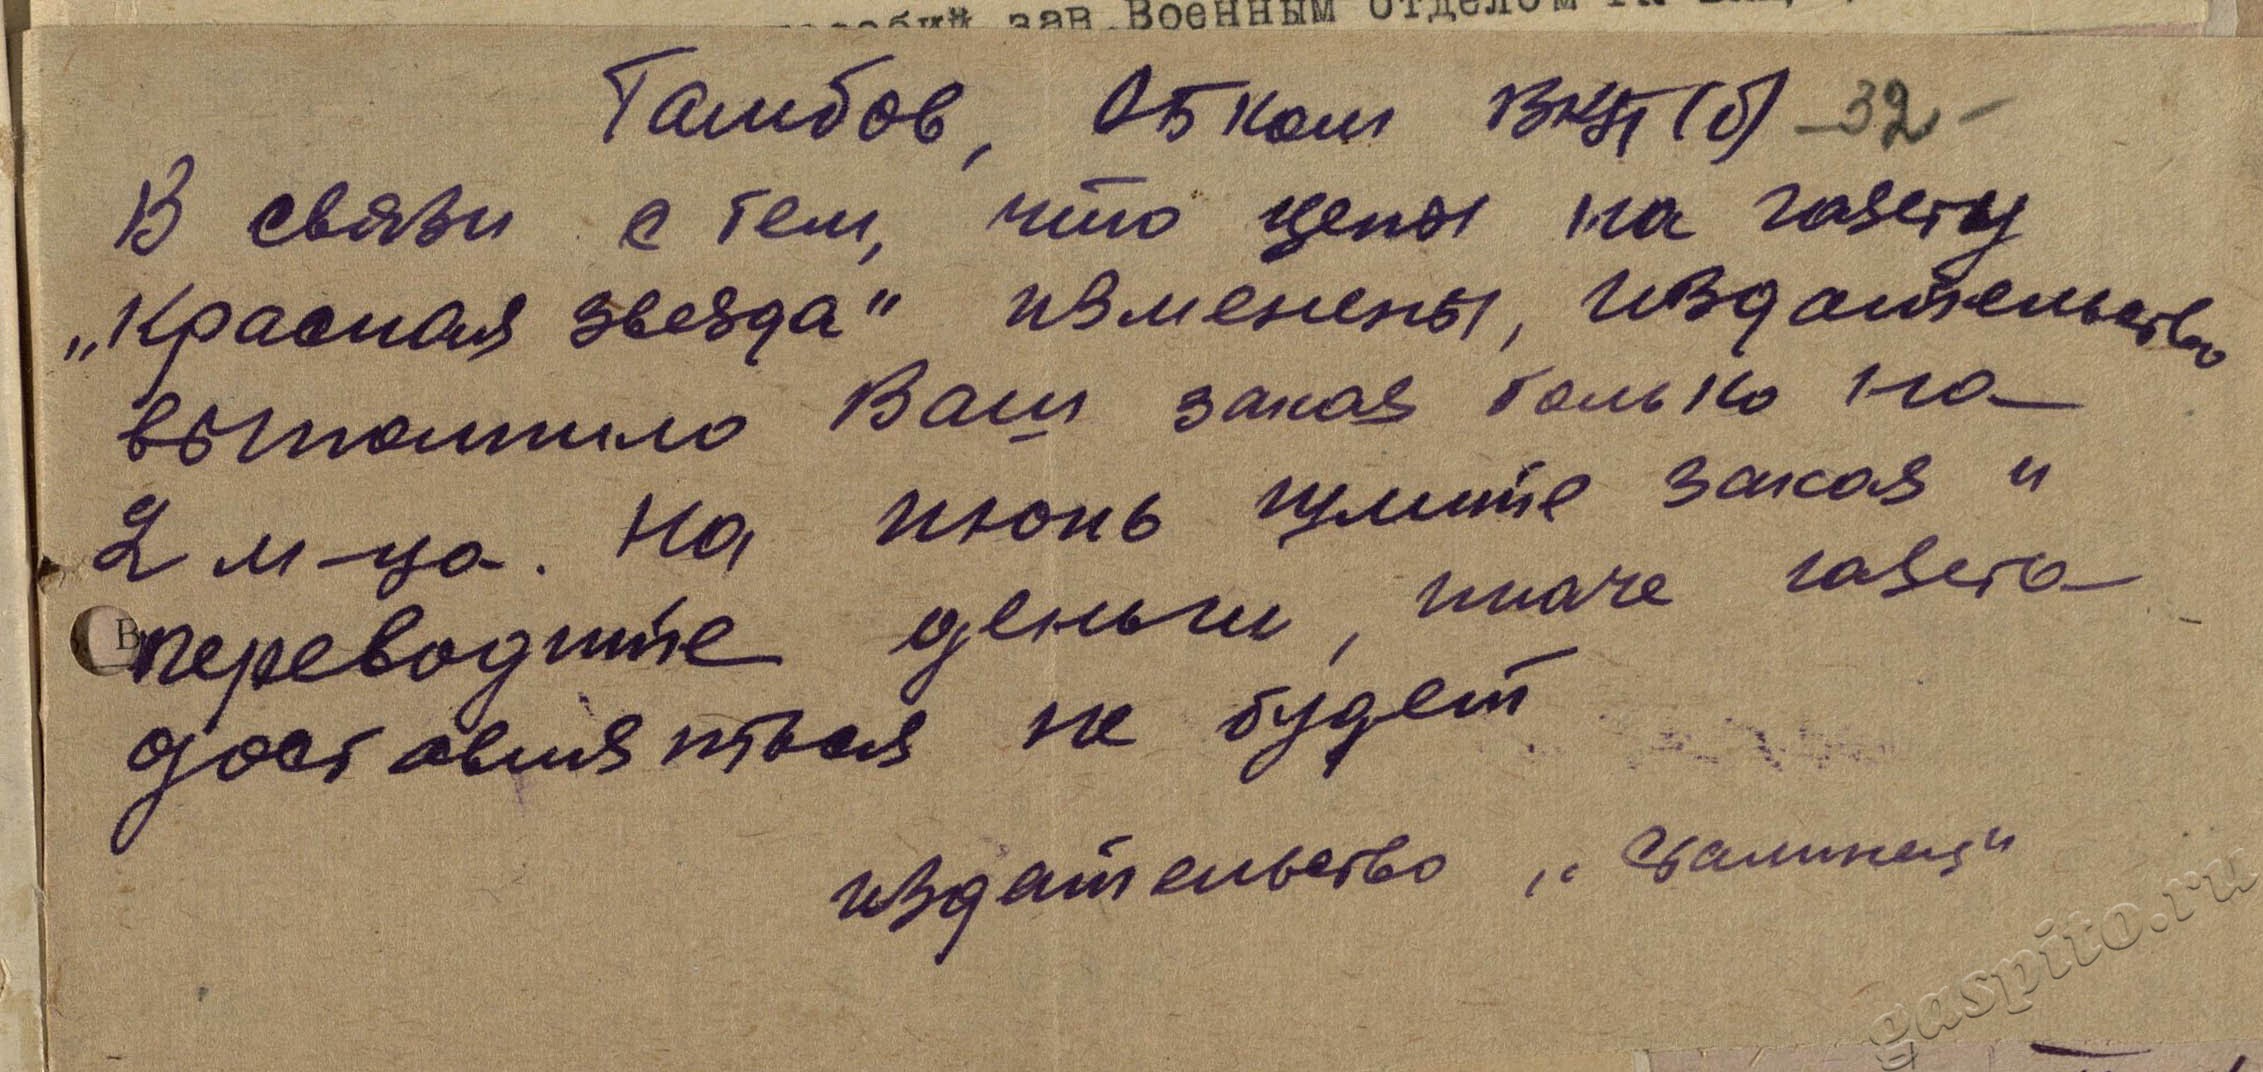 зав. Военным отделом
Тамбов, ОБком ВКП(б) -32-
В связи с тем, что цены на газету
„Красная звезда" изменены, издательство
выполнило Ваш заказ только на
2 м-ца. На июнь шлите заказ и
переводите деньги, иначе газета
доставляться не будет
издательство „Сталинец"
gaspito.ru